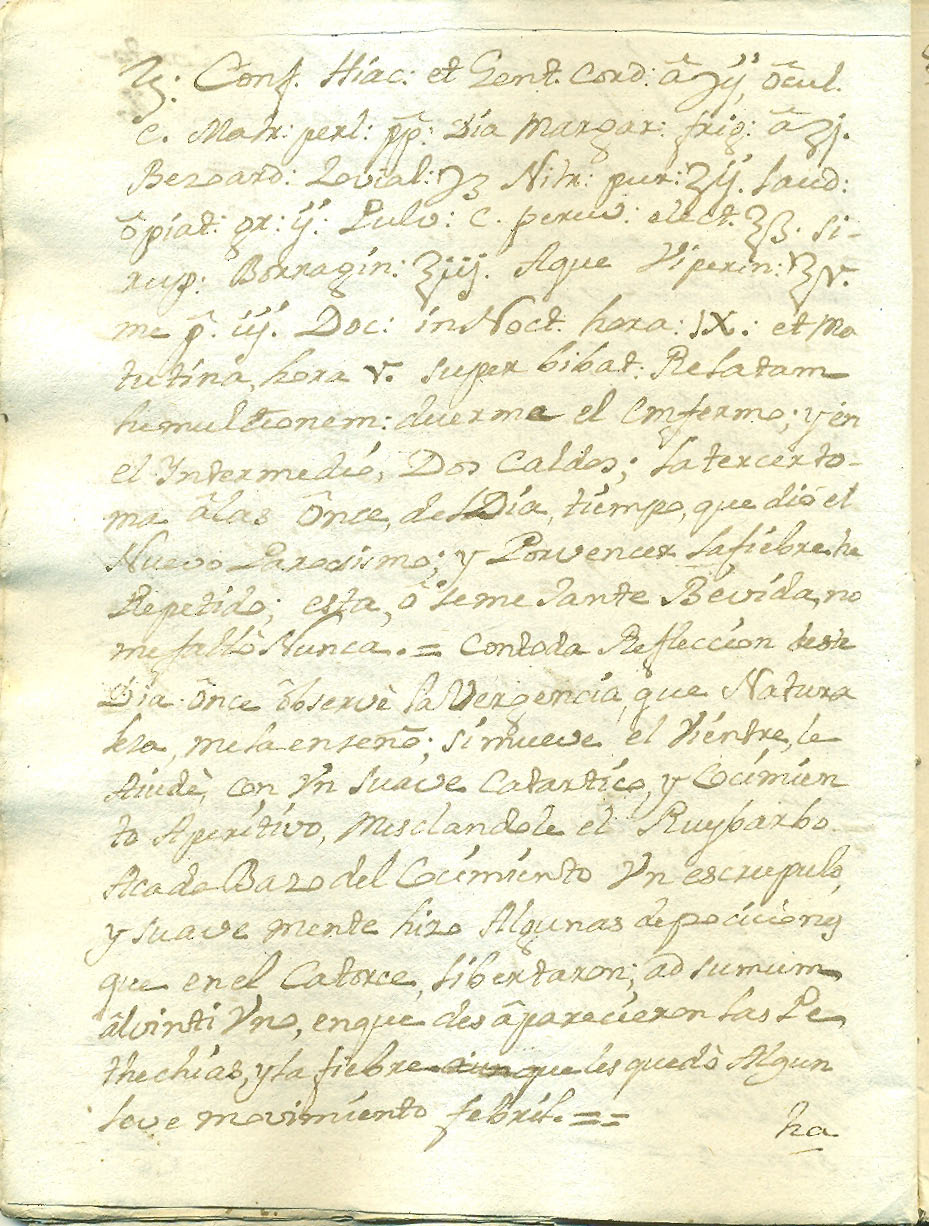 ℞: Conf. Hiac: et Gent. Cord: â ʒij, ôcul.
c. Matr: perl: pp̃: Dia Margar: frig: â ʒj.
Bezoard: Jovial: Nitr: pur: ʒij. laud:
ôpiat: gr: ij. Pulv: c. peruv: elect. ʒß. si-
rup: Borragin: ʒiij. Aque Viperin: ℥v.
me p̂. iij. Doc: in Noct. hora: IX.: et Ma
tutina, hora v. super bibat: Relatam
hemultionem: duerma el enfermo; y en
el Yntermedio, Dos Caldos; la tercer to-
ma âlas Ônce, del Dia, tiempo, que dió el
Nuevo Paroxismo; y Por vencer la fiebre he
Repetido; esta, ô seme Jante Bevida, no
me falló Nunca. = Con toda Refleccion deste
Dia Ônce ôbservè la Vergencia, que Natura
lesa, me la enseño; si mueve el Vientre, le
Aiudè, con Vn suave Catartico, y Cocimien
to Aperitivo, Mesclandole el Ruybarbo
Acada Bazo del Cocimiento Vn escrupulo,
y suave mente hizo Algunas depociciones
que en el Catorce, libertaron; ad sumum
âl vinti Vno, en que des âparecieron las Pe
thechias, y la fiebre aunque les quedò Algun
leve movimiento febril. = =
ha